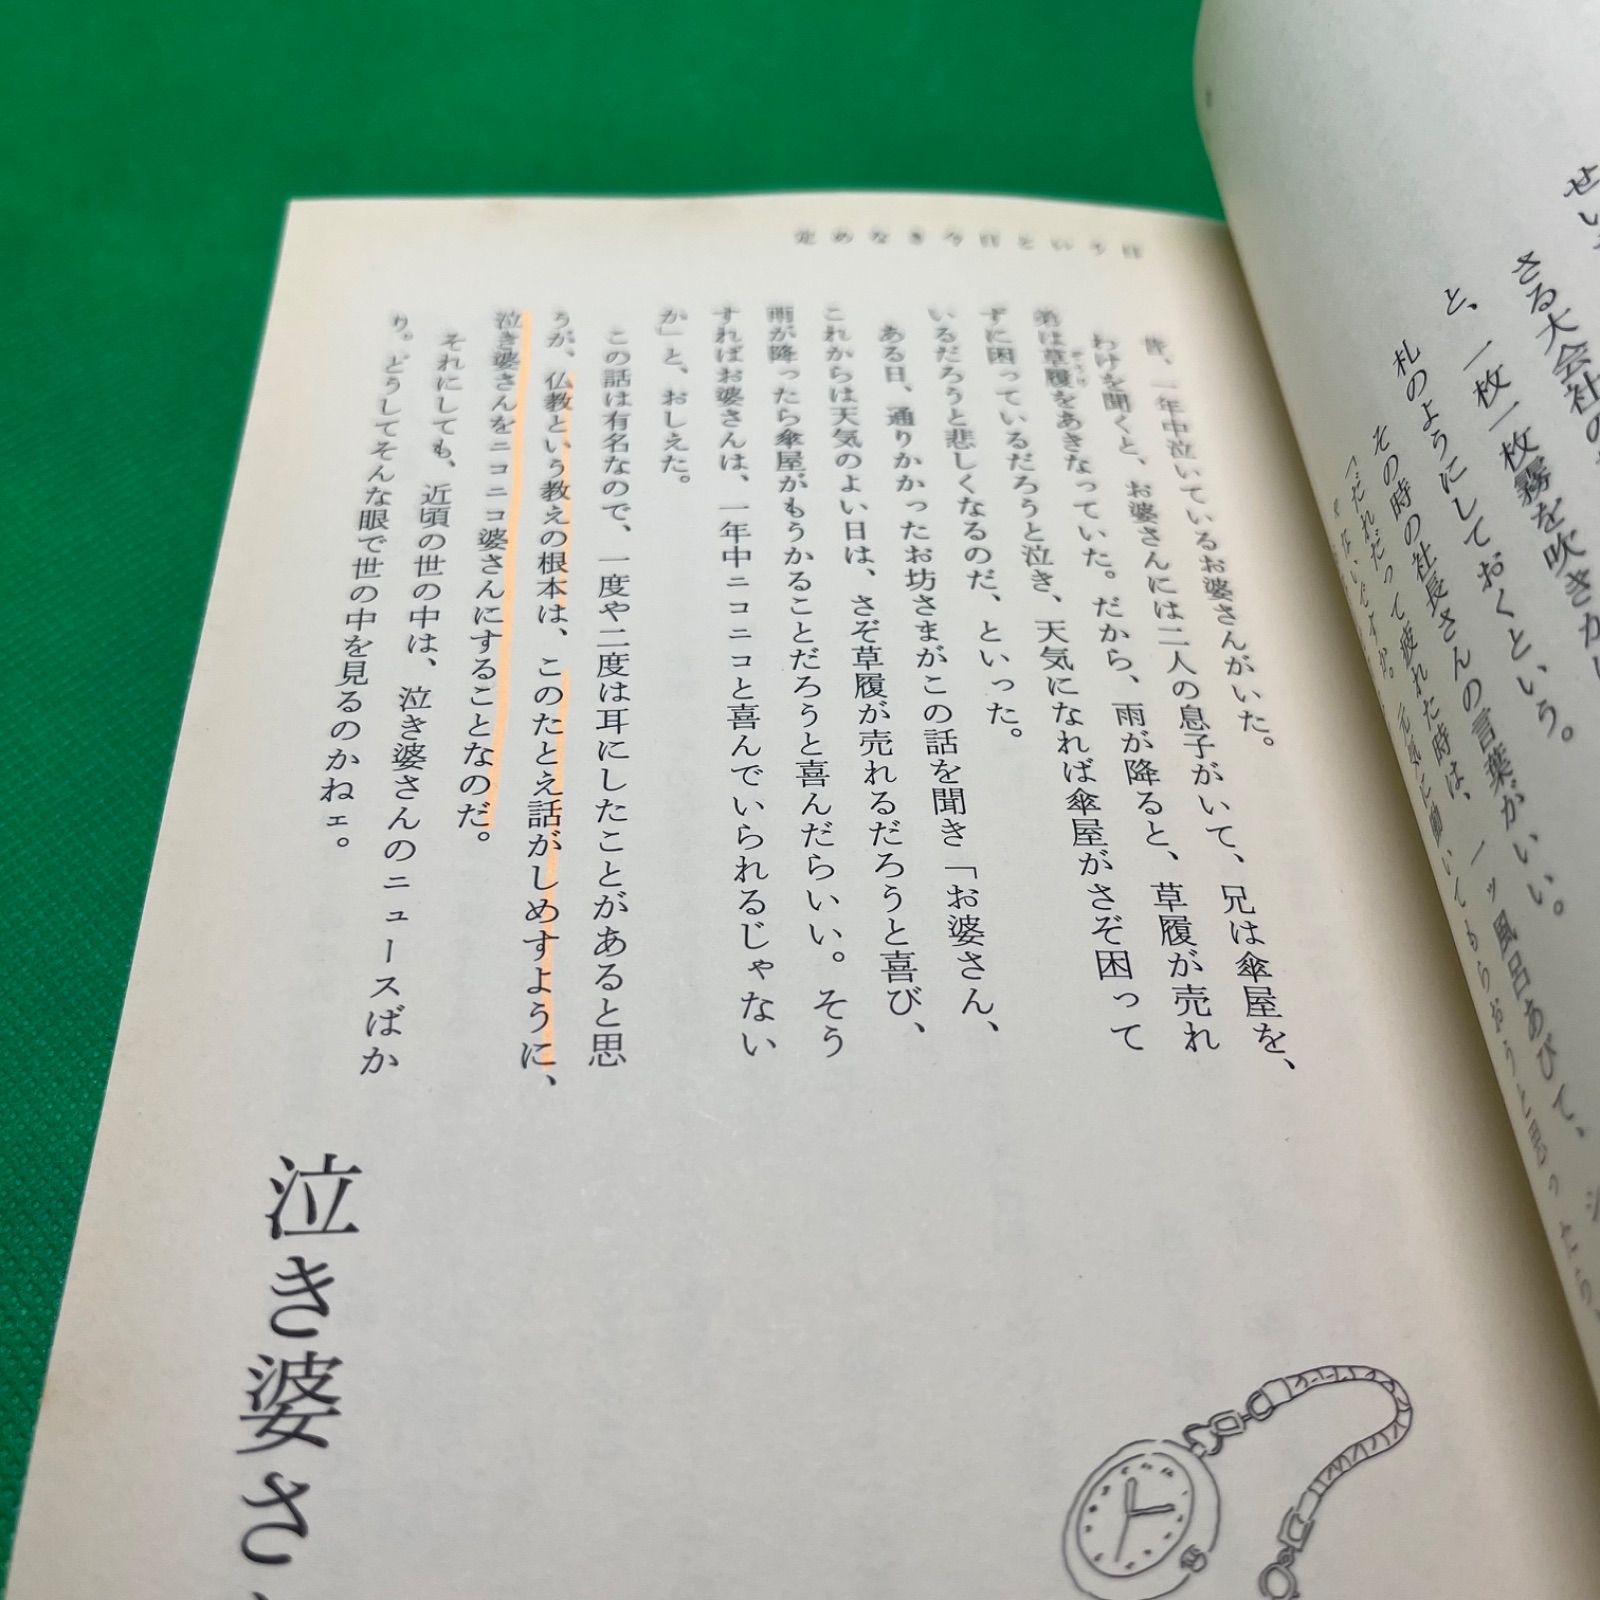 せい
さる大会社の
と、一枚一枚霧を吹きか
札のようにしておくという。
その時の社長さんの言葉がいい。
「だれだって疲れた時は、一ッ風呂あびて、
元気に働いてもらおうと思ったら
定めなき今日という日
昔、一年中泣いているお婆さんがいた。
わけを聞くと、お婆さんには二人の息子がいて、兄は傘屋を、
弟は草履をあきなっていた。だから、雨が降ると、草履が売れ
ずに困っているだろうと泣き、天気になれば傘屋がさぞ困って
いるだろうと悲しくなるのだ、といった。
ある日、通りかかったお坊さまがこの話を聞き「お婆さん、
これからは天気のよい日は、さぞ草履が売れるだろうと喜び、
雨が降ったら傘屋がもうかることだろうと喜んだらいい。そう
すればお婆さんは、一年中ニコニコと喜んでいられるじゃない
か」と、おしえた。
この話は有名なので、一度や二度は耳にしたことがあると思
うが、仏教という教えの根本は、このたとえ話がしめすように、
泣き婆さんをニコニコ婆さんにすることなのだ。
それにしても、近頃の世の中は、泣き婆さんのニュースばか
り。どうしてそんな眼で世の中を見るのかねェ。
泣き婆さ